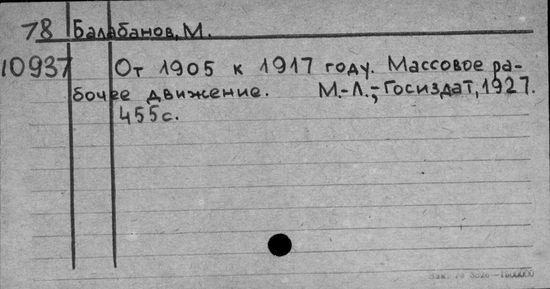 78 Балабанов, М.
10937 От 1905 к 1917 году. Массовое ра-
бочее движение. М.-Л., Госиздат, 1927.
455с.